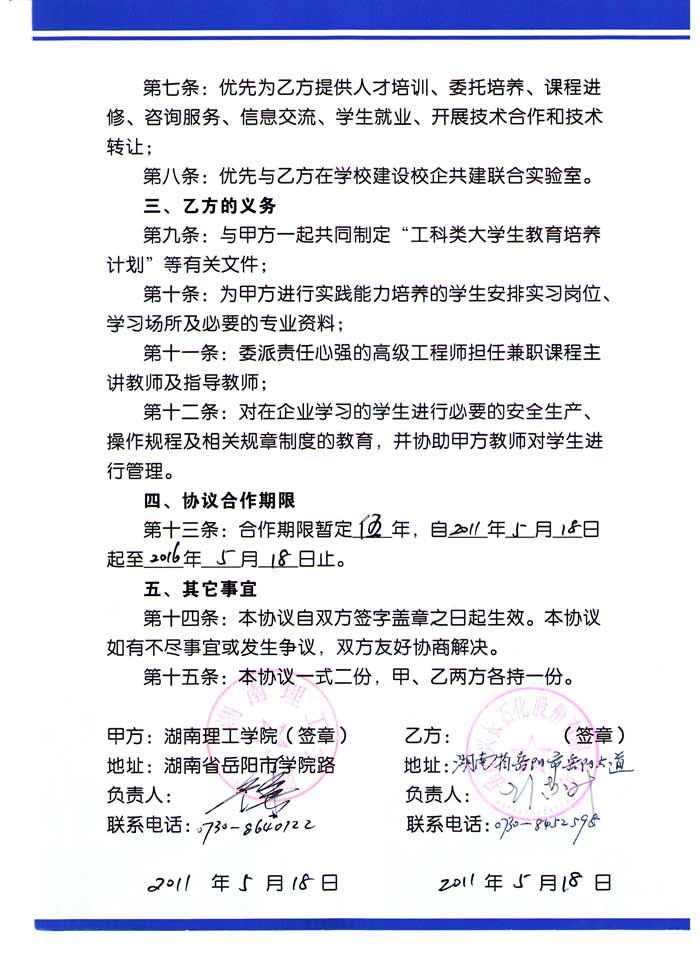 第七条：优先为乙方提供人才培训、委托培养、课程进
修、咨询服务、信息交流、学生就业、开展技术合作和技术
转让；
第八条：优先与乙方在学校建设校企共建联合实验室。
三、乙方的义务
第九条：与甲方一起共同制定“工科类大学生教育培养
计划”等有关文件；
第十条：为甲方进行实践能力培养的学生安排实习岗位、
学习场所及必要的专业资料；
第十一条：委派责任心强的高级工程师担任兼职课程主
讲教师及指导教师；
第十二条：对在企业学习的学生进行必要的安全生产、
操作规程及相关规章制度的教育，并协助甲方教师对学生进
行管理。
四、协议合作期限
第十三条：合作期限暂定伍年，自2011年5月18日
起至2016年5月18日止。
五、其它事宜
第十四条：本协议自双方签字盖章之日起生效。本协议
如有不尽事宜或发生争议，双方友好协商解决。
第十五条：本协议一式二份，甲、乙两方各持一份。
湖南理工学院
石化股份
甲方：湖南理工学院（签章）
乙方：（签章）
地址：湖南省岳阳市学院路
地址：湖南省岳阳市岳阳大道
负责人：
负责人：
联系电话：0730-8640122
联系电话：0730-8452598
2011 年 5 月 18 日
2011 年 5 月 18 日